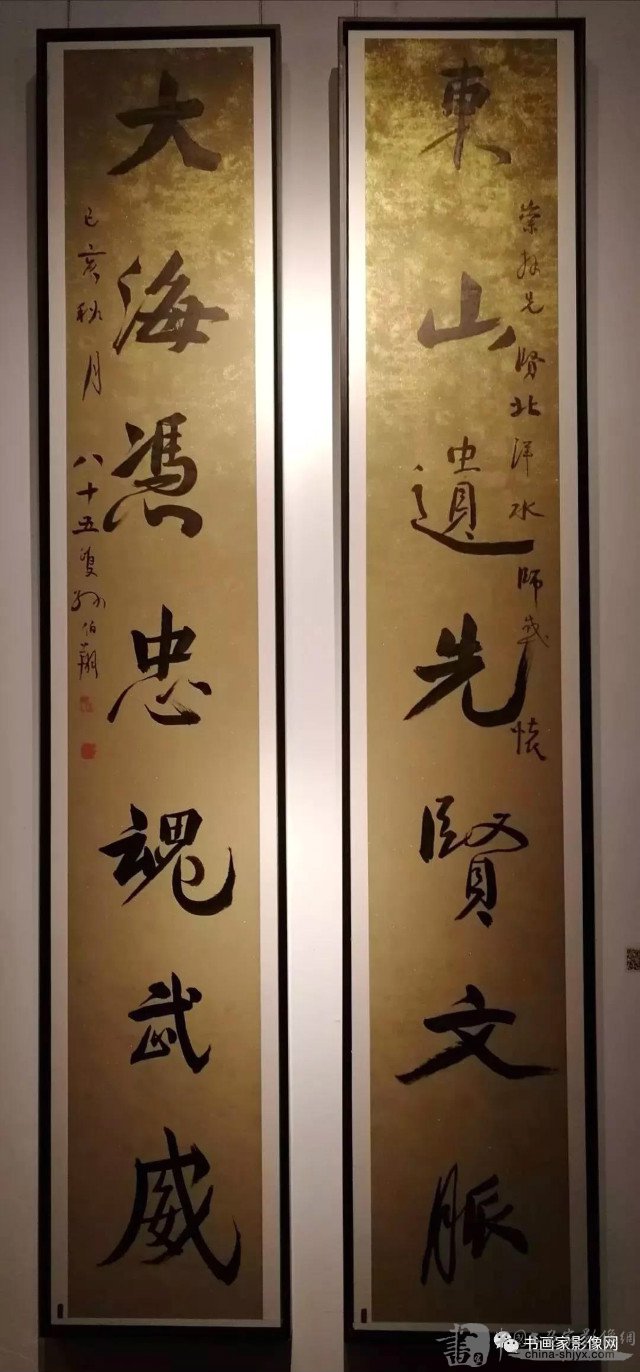 東山遺先賢文脈
崇 先賢北洋水師感懷
大海憑忠魂武威
己亥秋月 八十五叟孫伯翔
中國書画家影像網
书画家影像网
china-shjyx.com